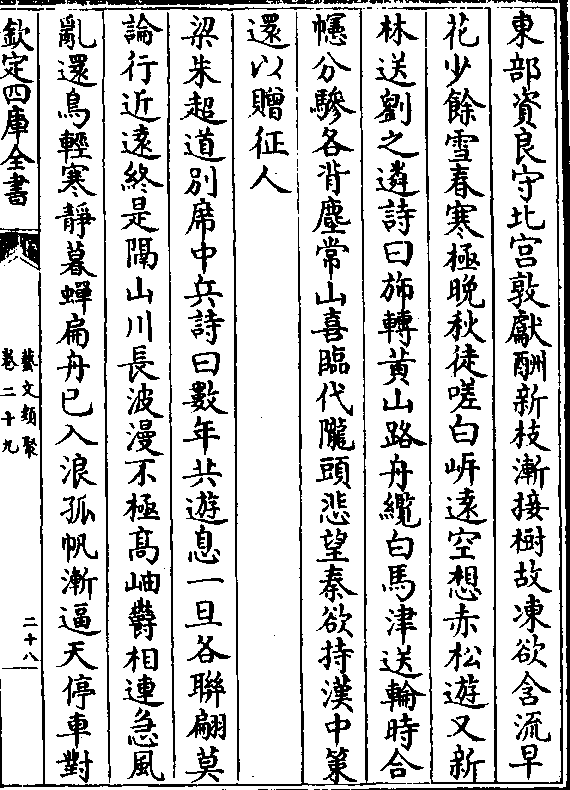 東部資良守北宫敦獻酬新枝漸接樹故凍欲含流早
花少餘雪春寒極晚秋徒嗟白岍遠空想赤松遊又新
林送劉之遴詩曰斾轉黃山路舟纜白馬津送輪時合
幰分驂各背塵常山喜臨代隴頭悲望秦欲持漢中策
還以贈征人
梁朱超道别席中兵詩曰數年共遊息一旦各聯翩莫
論行近遠終是隔山川長波漫不極高岫欝相連急風
亂還鳥輕寒靜暮蟬扁舟已入浪孤帆漸逼天停車對
欽定四庫全書
藝文類聚
卷二十九
二十八